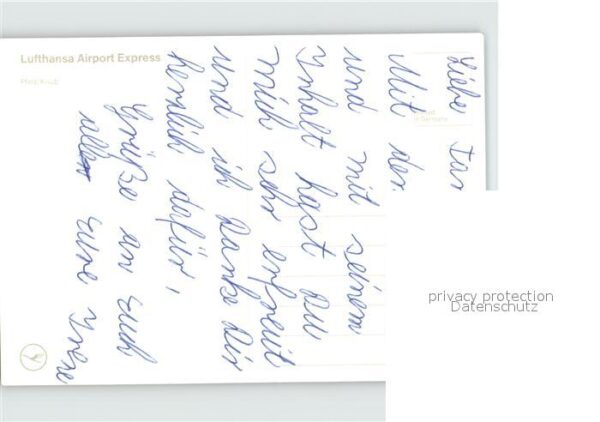 Lufthansa Airport Express
Liebe
Mit der
und mit seinem
Inhalt hast Du
mich sehr erfreut
und ich danke Dir
herzlich dafür,
Grüße an Euch
alle Eure Irene
privacy protection
Datenschutz